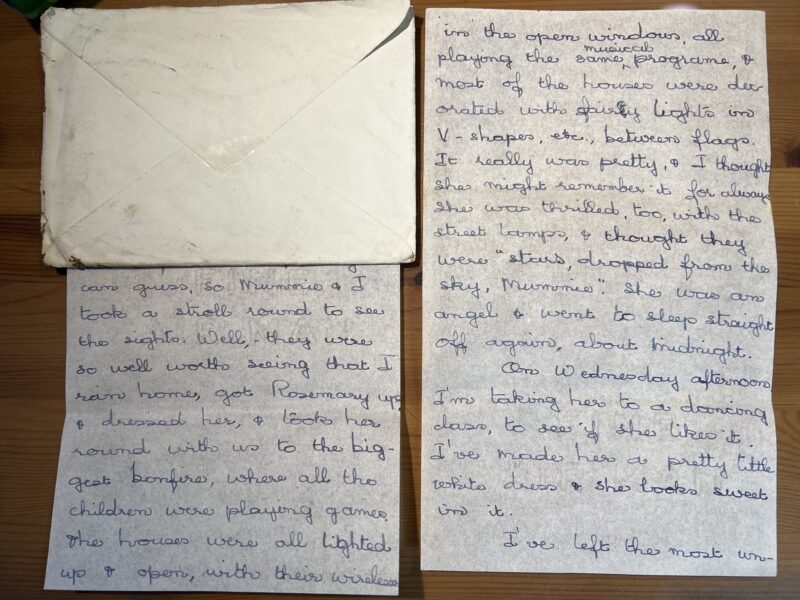 can guess, so Mummie & I
took a stroll round to see
the sights. Well, - they were
so well worth seeing that I
ran home, got Rosemary up,
& dressed her, & took her
round with us to the big-
gest bonfire, where all the
children were playing games.
The houses were all lighted
up & open, with their wireless
in the open windows, all
playing the same musical programe, &
most of the houses were dec
orated with fairy lights in
V-shapes, etc., between flags.
It really was pretty, & I thought
she might remember it for always
She was thrilled, too, with the
street lamps, & thought they
were "stars, dropped from the
sky, Mummie". She was an
angel & went to sleep straight
off again, about midnight.
On Wednesday afternoon
I'm taking her to a dancing
class, to see if she likes it.
I've made her a pretty little
white dress & she looks sweet
in it.
I've left the most un-